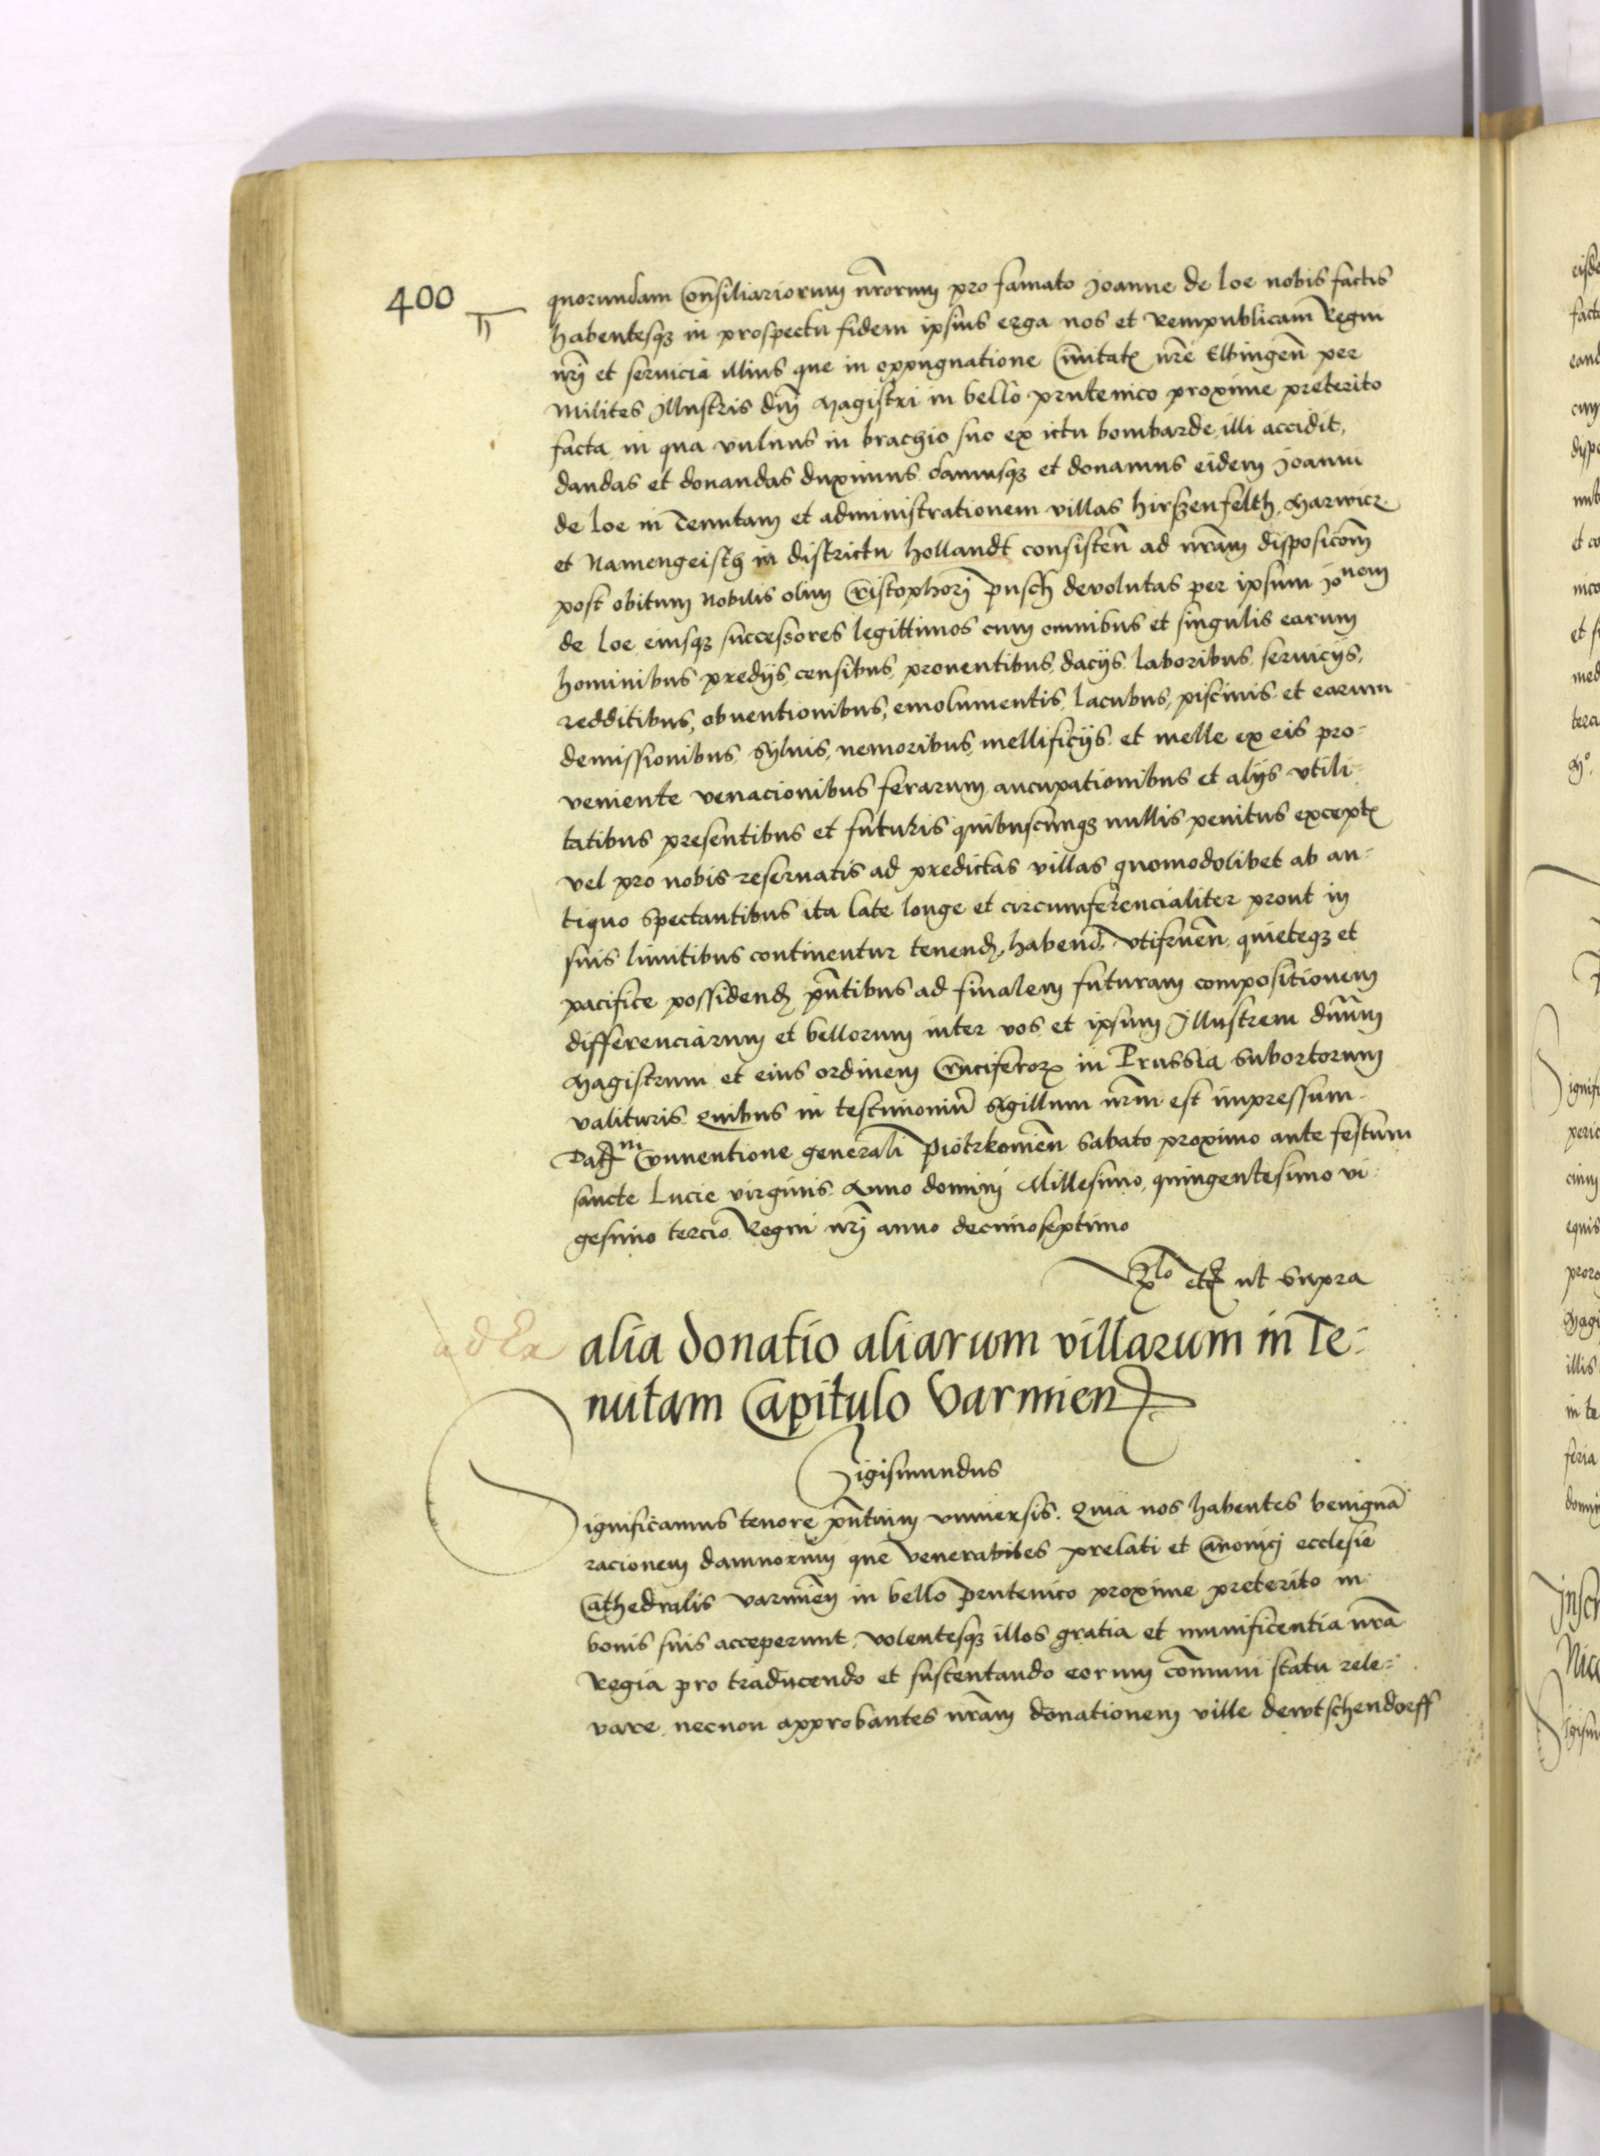 400
quorundam Consiliariorum nrorum pro famato Joanne de loe nobis factis
habentesqz in prospectu fidem ipsius erga nos et Rempublicam Regni
nri et seruicia illius que in oppugnatione Ciuitatis nre Elbingen per
Milites Illustris dni Magistri in bello prutenico proxime preterito
facta in qua vulnus in brachio suo ex ictu bombarde illi accidit,
dandas et donandas duximus damusqz et donamus eidem Joanni
de loe in Tenutam et administrationem villas hirszenfelth, Marwicz
et Namengeisth in districtu hollandt consisten ad nram disposicom
post obitum Nobilis olim Cristophori pusch devolutas per ipsum Jonem
de loe eiusqz successores legittimos cum omnibus et singulis earum
hominibus predijs censibus prouentibus dacijs laboribus seruicijs,
redditibus, obuentionibus, emolumentis lacubus, piscinis et earum
demissionibus Syluis, nemoribus, mellificijs et melle ex eis pro-
veniente venacionibus ferarum aucupationibus et alijs vtili-
tatibus presentibus et futuris quibuscunqz nullis penitus exceptis
vel pro nobis reseruatis ad predictas villas quomodolibet ab an-
tiquo spectantibus ita late longe et circumferencialiter prout in
suis limitibus continentur tenend, habend, vtifruen, quieteqz et
pacifice possidend pntibus ad finalem futuram compositionem
differenciarum et bellorum inter nos et ipsum Illustrem dnum
Magistrum et eius ordinem Cruciferorum in Prussia subortorum
valituris Quibus in testimoniu sigillum nrm est impressum.
Dat in Conuentione generali Piotrkouien Sabato proximo ante festum
sancte Lucie virginis Anno domini Millesimo, quingentesimo vi-
gesimo tercio Regni nri anno decimoseptimo
Rlo etc ut supra
alia donatio aliarum villarum in Te-
nutam Capitulo Varmien
Sigismundus
Significamus tenore pntium vniuersis. Quia nos habentes benigna
racionem damnorum que Venerabiles prelati et Canonici ecclesie
Cathedralis varmien in bello prutenico proxime preterito in
bonis suis acceperunt, volentesqz illos gratia et munificentia nra
Regia pro traducendo et sustentando eorum comuni statu rele-
vare necnon approbantes nram donationem ville dewtschendorff